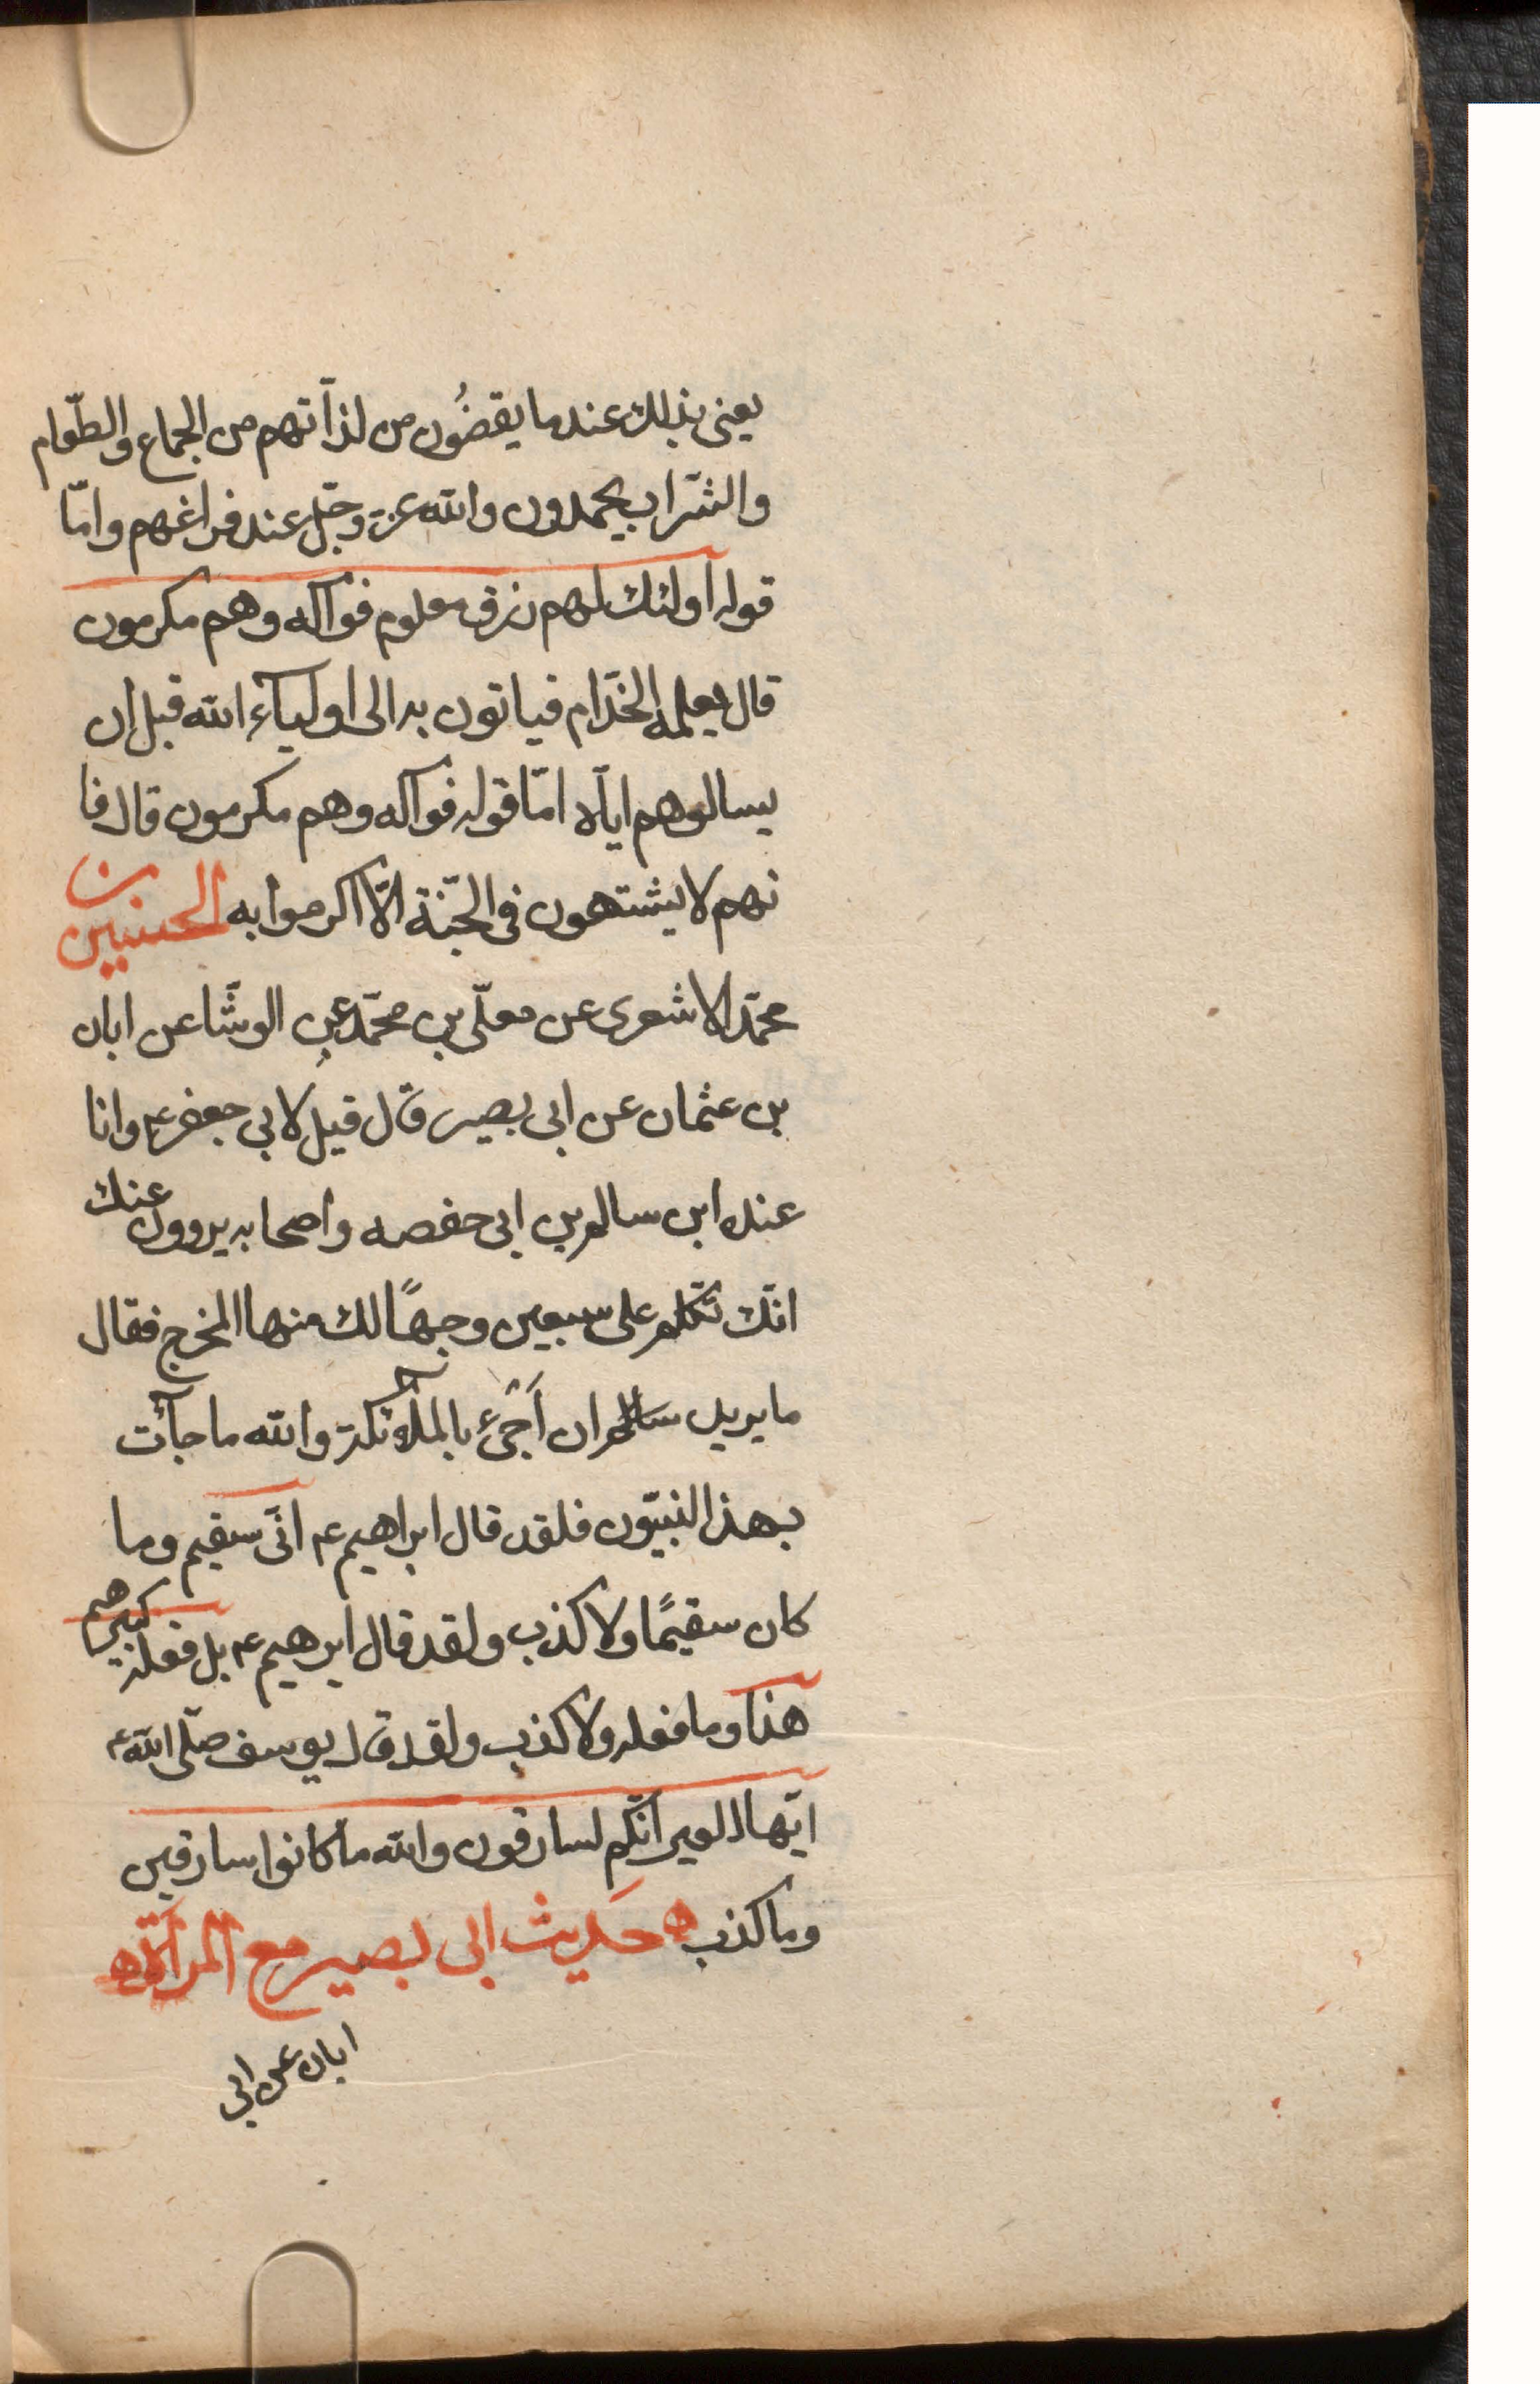 يعنى بذلك عند ما يقضُون من لذآتهم من الجماع والطّعام
والشّراب يحمدون والله عز وجّل عند فراغهم وامّا
قوله اولئك لهم رزق معلوم فوآكه وهم مكرمون
قال يعلمه الخدّام فياتون به الى اوليآء الله قبل ان
يسالوهم ايآه امّا قوله فوآكه وهم مكرمون قال فا
نهم لا يشتهون فى الجّنة الّا اكرموا به الحسين بن
محمّد الاشعرى عن معلّى بن محمّد عن الوشّا عن ابان
بن عثمان عن ابى بصير قال قيل لابى جعفر ع وانا
عنده ابن سالم بن ابى حفصه واصحابه يروون عنك
انّك تكّلم على سبعين وجهًا لك منها المخرج فقال
ما يريد سالم ان اَجئ بالملائكة والله ما جآئت
بهذا النبيّون فلقد قال ابراهيم ع انّى سقيم وما
كان سقيمًا ولا كذب ولقد قال ابرهيم ع بل فعله كبيرهم
هذا وما فعله ولا كذب ولقد قال يوسف صلّى الله ع
ايّها العير انّكم لسارقون والله ما كانوا سارقين
وما كذب ه حَديث ابى بصير مع المرأة ه
ابان عن ابى